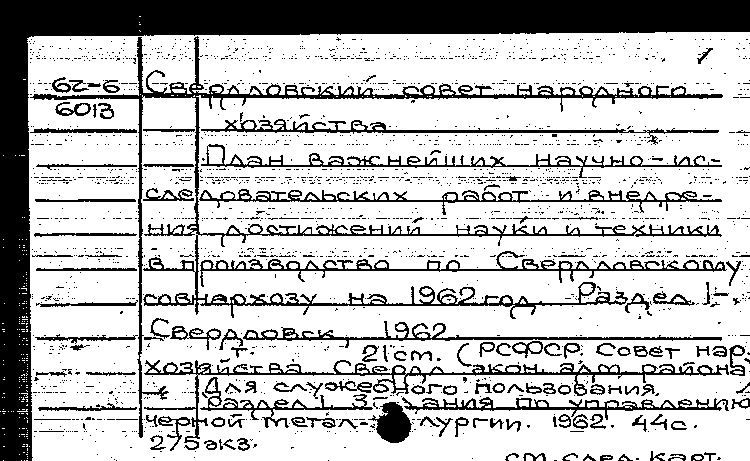 62-6
6013
Свердловский совет народного
хозяйства
План важнейших научно-ис-
следовательских работ и внедре-
ния достижений науки и техники
в производство по Свердловскому
совнархозу на 1962 год. Раздел 1-.
Свердловск, 1962.
т. 21 см. (РСФСР. Совет нар.
хозяйства Свердл. экон. адм. района
Для служебного пользования.
Раздел 1. по управлению
черной метал- лургии. 1962. 44 с.
275 экз.
см. след. карт.